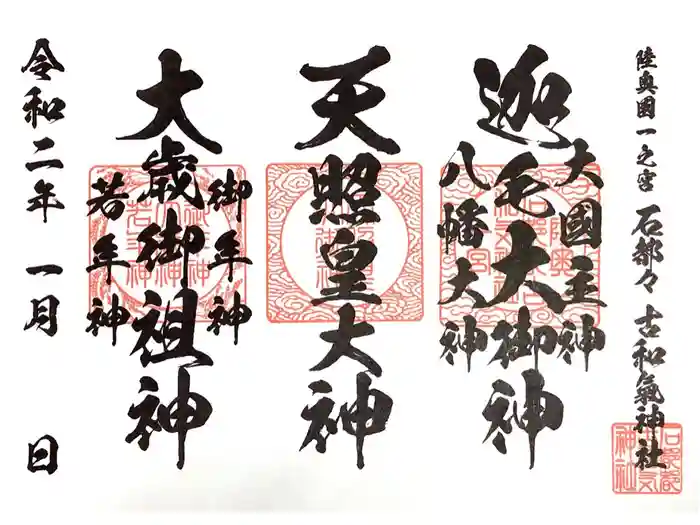 陸奥國一之宮 石都々古和氣神社
大國主神
迦毛大御神
八幡大神
天照皇大神
御年神
大歳御祖神
若年神
令和二年 一月 日